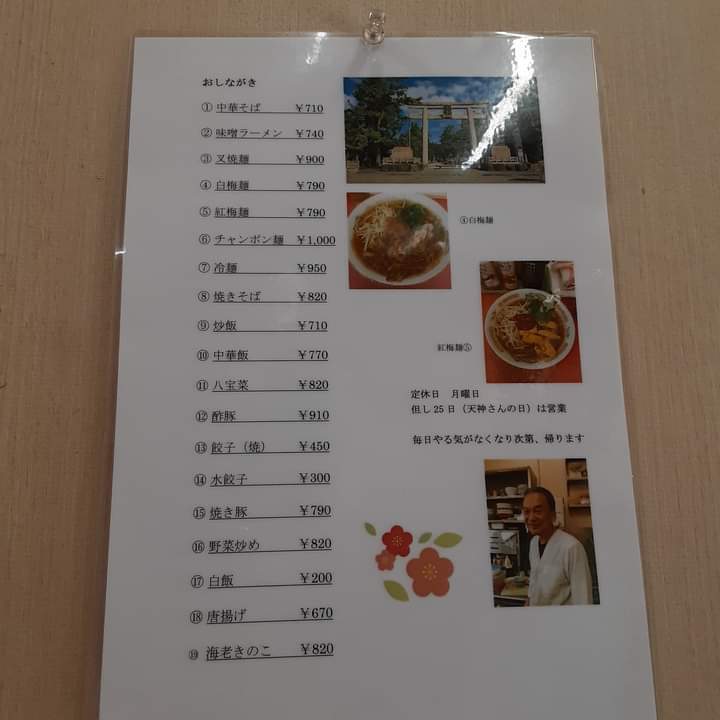 おしながき
① 中華そば ￥710
② 味噌ラーメン ￥740
③ 叉焼麺 ￥900
④ 白梅麺 ￥790
⑤ 紅梅麺 ￥790
⑥ チャンポン麺 ￥1,000
⑦ 冷麺 ￥950
⑧ 焼きそば ￥820
⑨ 炒飯 ￥710
⑩ 中華飯 ￥770
⑪ 八宝菜 ￥820
⑫ 酢豚 ￥910
⑬ 餃子（焼） ￥450
⑭ 水餃子 ￥300
⑮ 焼き豚 ￥790
⑯ 野菜炒め ￥820
⑰ 白飯 ￥200
⑱ 唐揚げ ￥670
⑲ 海老きのこ ￥820
④白梅麺
紅梅麺⑤
定休日 月曜日
但し25日（天神さんの日）は営業
毎日やる気がなくなり次第、帰ります